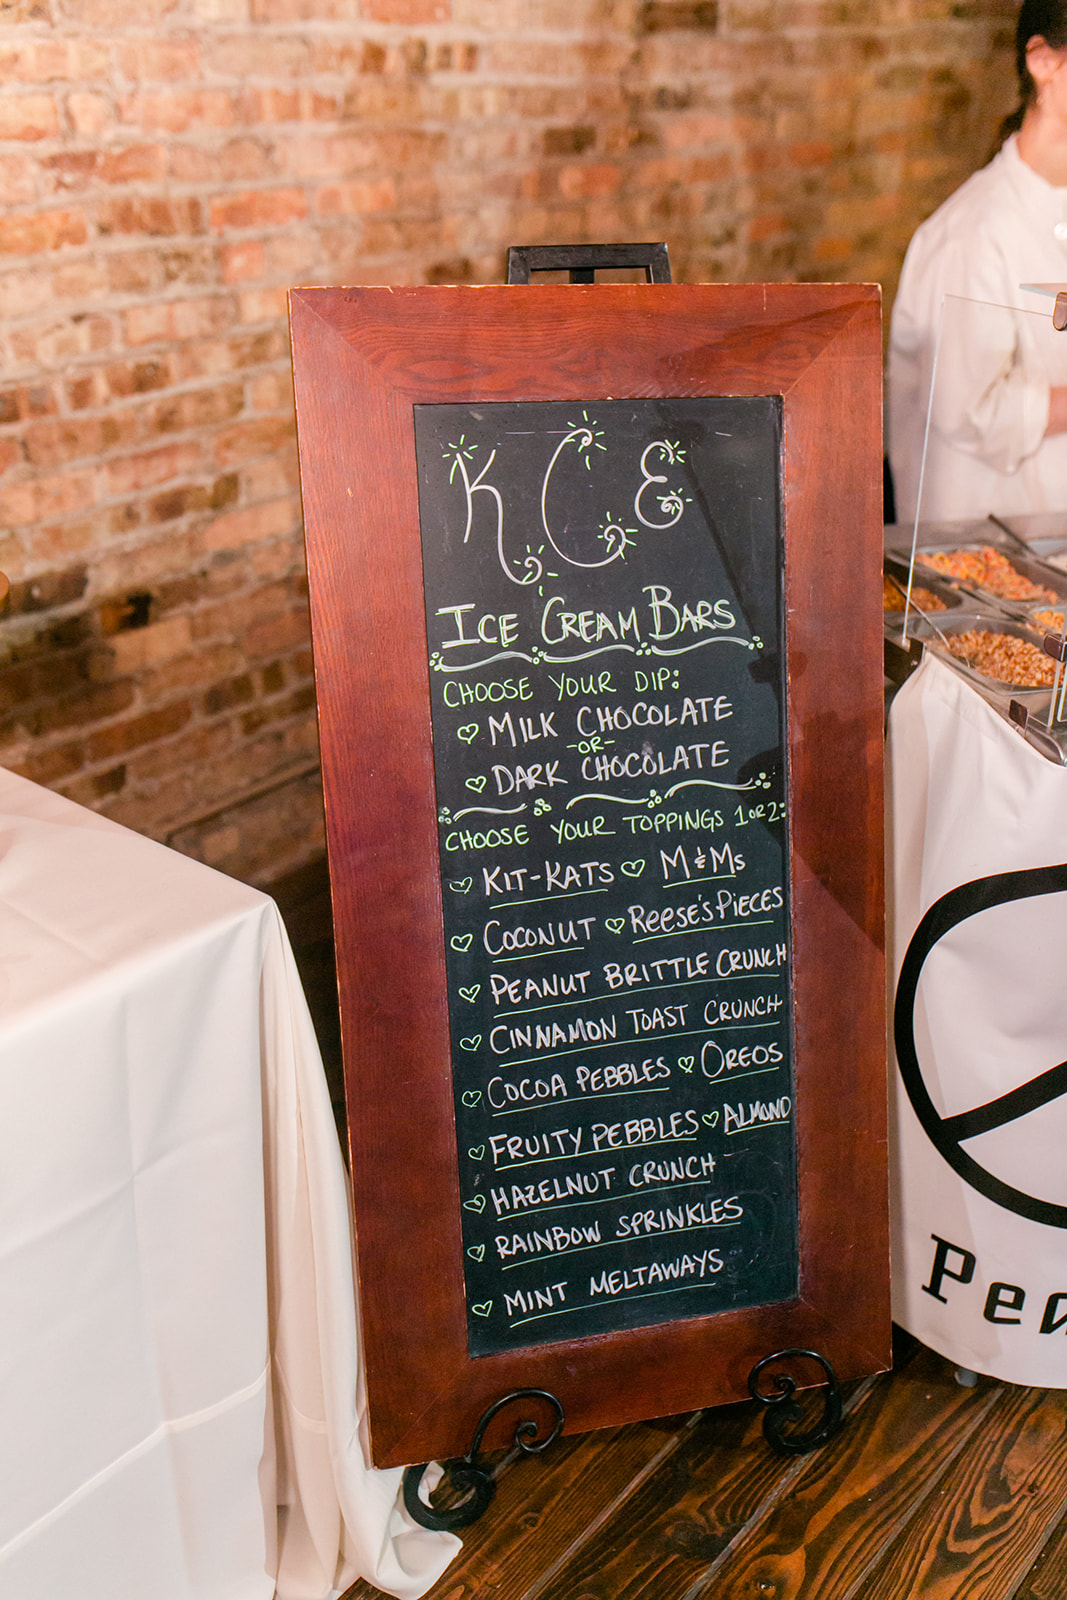 KCE
ICE CREAM BARS
CHOOSE YOUR DIP:
MILK CHOCOLATE
-OR-
DARK CHOCOLATE
CHOOSE YOUR TOPPINGS 1 OR 2:
KIT-KATS ♡ M&Ms
COCONUT ♡ REESE'S PIECES
PEANUT BRITTLE CRUNCH
CINNAMON TOAST CRUNCH
COCOA PEBBLES ♡ OREOS
FRUITY PEBBLES ♡ ALMOND
HAZELNUT CRUNCH
RAINBOW SPRINKLES
MINT MELTAWAYS